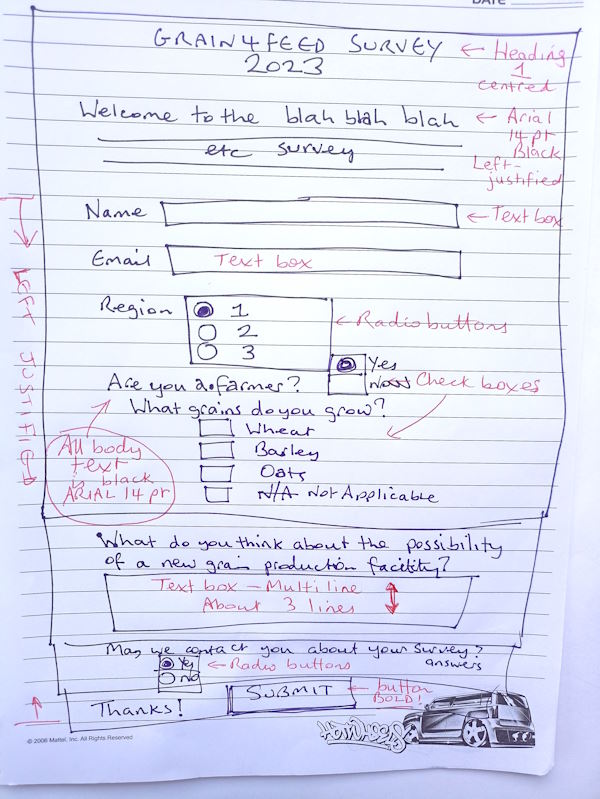 DATE
GRAIN4FEED SURVEY ← Heading
2023 1
centred
Welcome to the blah blah blah ← Arial
14 pt
etc survey Black
Left-
justified
Name ← Text box
Email Text box
Region 1
2 ← Radio buttons
3
Yes
Are you a farmer? No Check boxes
What grains do you grow?
Wheat
Barley
Oats
N/A Not Applicable
LEFT JUSTIFIED
All body
text
is black
ARIAL 14 pt
What do you think about the possibility
of a new grain production facility?
Text box - Multi line
About 3 lines
May we contact you about your survey?
answers
Yes ← Radio buttons
No
Thanks! SUBMIT ← button
BOLD!
© 2006 Mattel, Inc. All Rights Reserved